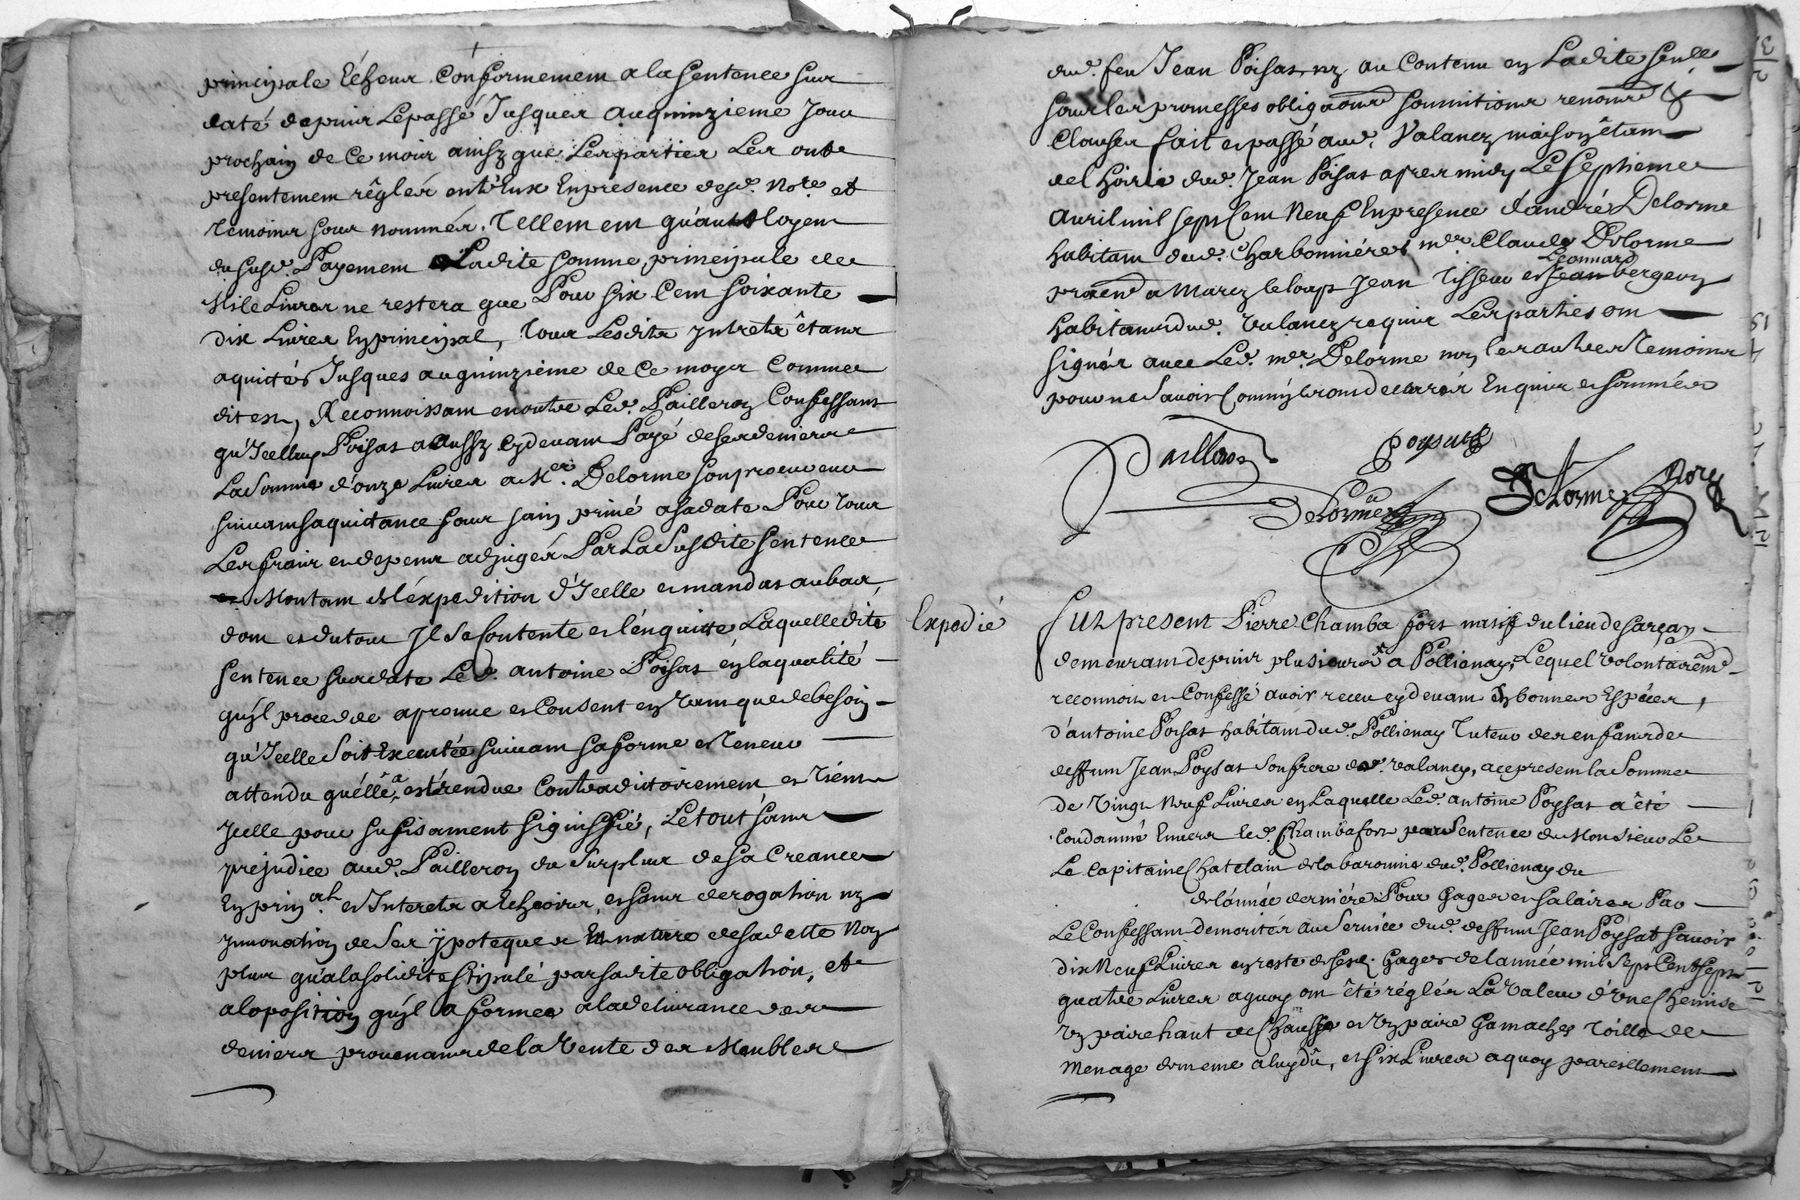 principale Echeus conformement a la sentence sus
daté depuis le passé Jusques au quinzieme Jour
prochain de ce mois ainsy que les parties les ont
presentement réglés entr'Eux En presence desd. No.re et
temoins sous nommés, Tellement qu'au moyen
du susd. Payement Ladite somme principale de
Mile Livres ne restera que Pour six Cent soixante
dix Livres En principal, tous Lesdits Interets étans
aquittés Jusques au quinzieme de ce moys Comme
dit est, Reconnoissant en outre Led. Pailleron Confessant
qu'Jcelluy Poisat a aussy cy devant Payé de ses deniers
La somme d'onze Livres a M.er Delorme son procureur
suivant sa quittance sous sain privé a sa date Pour tous
Les frais et depens adjugés Par La susdite sentence
Montant et l'éxpedition d'Jcelle et mandat au bas
dont et du tout Jl se Contente et l'en quitte Laquelle dite
sentence sus date Led. antoine Poisat en la qualité
qu'jl procede aprouve et Consent en tant que de besoin
qu'Jcelle soit Executée suivant sa forme et teneur
attendu qu'éllê a esté rendue Contradictoirement et tient
Jcelle pour sufisament signiffié, Le tout sans
préjudice aud. Pailleron du surplus de sa Creance
En prin.al et Interets a Echeoirs, et sans derogation ny
jnnovation de ses ÿpoteques En nature de sa dette Non
plus qu'a la solidité stipulé par sadite obligation, et
a l'oposition qu'jl a formee a la delivrance des
deniers provenans de la Vente des Meubles
dud. feu Jean Poisat, ny au Contenu en Ladite sentce
sous les promesses obligaons soumitions renons &
Clauses fait et passé aud. Valancy maison étant
de L'hoirie dud. Jean Poisat apres midy Le septieme
avril mil sept Cent Neuf En presence d'andré Delorme
habitant dud. Charbonniéres m.er Claude Delorme
praen a Marcy le loup, Jean Tisseur et Jean bergeon
Leonnard
habitants dud. Valancy requis Les parties ont
signés avec Led. m.er Delorme non les autres temoins
pour ne savoir Comm'jls ont declarés Enquis et sommés
Pailleron
Poysat
Delorme
Delorme
Nore
Expedié
Fut present Pierre Chambafort natif du lieu de sarçay
demeurant depuis plusieurs a Pollienay, Lequel Volontairemt
reconnoit et Confesse avoir receu cy devant En bonnes Espéces,
d'antoine Poisat habitant dud. Pollienay Tuteur des enfans de
deffunt Jean Poysat son frere dud. Valancy, a ce present la somme
de Vingt Neuf Livres en Laquelle Led. antoine Poysat a été
Condamné Envers led. Chambafort par sentence de Monsieur Le
Le Capitaine Chatelain de la baronnie dud. Pollienay du
de l'année derniére Pour Gages et salaires Par
Le Confessant demerités au service dud. deffunt Jean Poysat savoir
dix Neuf Livres en reste de ses Gages de l'année mil sept Cent sept
quatre Livres a quoy ont été réglés La Valeur d'Une Chemise
Un paire haut de Chausse et Un paire Gamaches Toille de
Menage de meme a luy dû, et six Livres a quoy pareillement